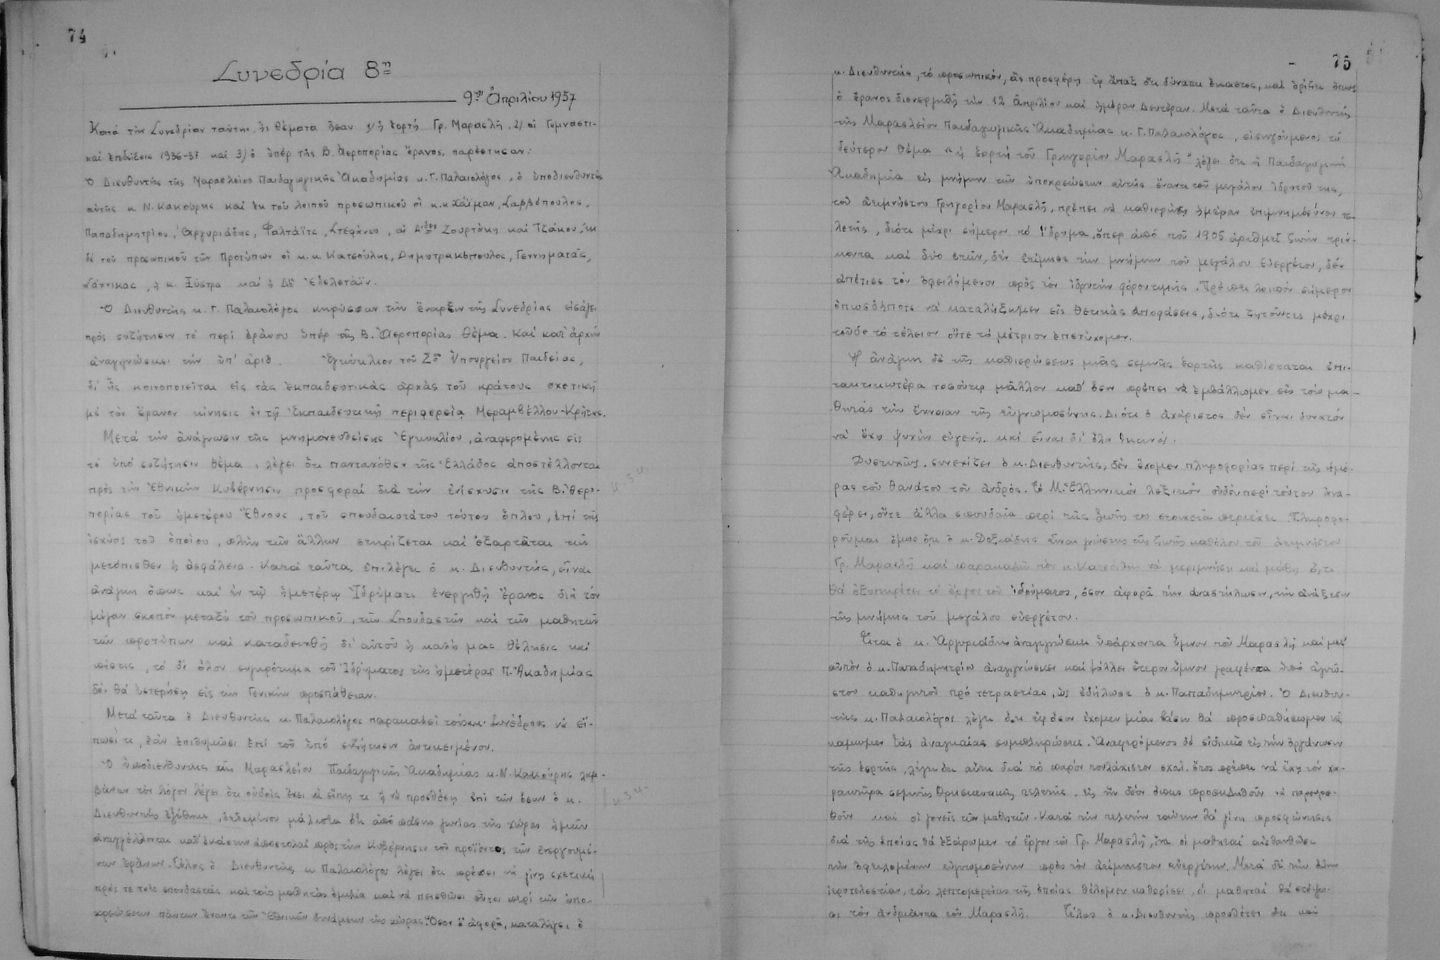 74
Συνεδρία 8η
9η Ἀπριλίου 1937
Κατά τήν Συνεδρίαν ταύτην, ἧς θέματα ἦσαν 1) ἡ ἑορτή Γρ. Μαρασλῆ, 2) αἱ Γυμναστι-
καί ἐπιδείξεις 1936-37 καί 3) ὁ ὑπέρ τῆς Β. Ἀεροπορίας ἔρανος, παρέστησαν:
Ὁ Διευθυντής τῆς Μαρασλείου Παιδαγωγικῆς Ἀκαδημίας κ. Γ. Παλαιολόγος, ὁ ὑποδιευθυντής
αὐτῆς κ. Ν. Κακούρης καί ἐκ τοῦ λοιποῦ προσωπικοῦ οἱ κ.κ. Χάϊμαν, Σαββόπουλος,
Παπαδημητρίου, Ἀργυριάδης, Φαλτάϊτς, Στεφάνου, αἱ Δίδες Ζουρτάκη καί Τζάκου, ἐκ
δέ τοῦ προσωπικοῦ τῶν Προτύπων οἱ κ.κ. Κατσούλης, Δημητρακόπουλος, Γεννηματᾶς,
ἡ κ. Ξύστρα καί ἡ Δίς Ἐδελστάϊν.
Ὁ Διευθυντής κ. Γ. Παλαιολόγος κηρύσσων τήν ἔναρξιν τῆς Συνεδρίας εἰσάγει
πρός συζήτησιν τό περί ἐράνου ὑπέρ τῆς Β. Ἀεροπορίας θέμα. Καί κατ' ἀρχήν
ἀναγιγνώσκει τήν ὑπ' ἀριθ. Ἐγκύκλιον τοῦ Σοῦ Ὑπουργείου Παιδείας,
δι' ἧς κοινοποιεῖται εἰς τάς ἐκπαιδευτικάς ἀρχάς τοῦ κράτους σχετική
μέ τόν ἔρανον κίνησις ἐν τῇ Ἐκπαιδευτικῇ περιφερείᾳ Μεραμβέλλου-Κρήτης.
Μετά τήν ἀνάγνωσιν τῆς μνημονευθείσης Ἐγκυκλίου, ἀναφερομένης εἰς
τό ὑπό συζήτησιν θέμα, λέγει ὅτι πανταχόθεν τῆς Ἑλλάδος ἀποστέλλονται
πρός τήν Ἐθνικήν Κυβέρνησιν προσφοραί διά τήν ἐνίσχυσιν τῆς Β. Ἀερο-
πορίας τοῦ ἡμετέρου Ἔθνους, τοῦ σπουδαιοτάτου τούτου ὅπλου, ἐπί τῆς
ἰσχύος τοῦ ὁποίου, πλήν τῶν ἄλλων στηρίζεται καί ἐξαρτᾶται τῶν
μετόπισθεν ἡ ἀσφάλεια. Κατά ταῦτα, ἐπιλέγει ὁ κ. Διευθυντής, εἶναι
ἀνάγκη ὅπως καί ἐν τῷ ἡμετέρῳ Ἱδρύματι ἐνεργηθῇ ἔρανος διά τόν
μέγαν σκοπόν μεταξύ τοῦ προσωπικοῦ, τῶν Σπουδαστῶν καί τῶν μαθητῶν
τῶν προτύπων καί καταδειχθῇ δι' αὐτοῦ ἡ καλή μας θέλησις καί
πίστις, τό δέ ὅλον συγκρότημα τοῦ Ἱδρύματος τῆς ἡμετέρας Π. Ἀκαδημίας
δέν θά ὑστερήσῃ εἰς τήν Γενικήν προσπάθειαν.
Μετά ταῦτα ὁ Διευθυντής κ. Παλαιολόγος παρακαλεῖ τούς κ.κ. Συνέδρους νά εἴ-
πωσί τι, ἐάν ἐπιθυμῶσι ἐπί τοῦ ὑπό συζήτησιν ἀντικειμένου.
Ὁ ὑποδιευθυντής τῆς Μαρασλείου Παιδαγωγικῆς Ἀκαδημίας κ. Ν. Κακούρης λαμ-
βάνων τόν λόγον λέγει ὅτι οὐδείς ἔχει νά εἴπῃ τι ἤ νά προσθέσῃ ἐπί τῶν ὅσων ὁ κ.
Διευθυντής ἐξέθηκε, δεδομένου μάλιστα ὅτι ἀπό πάσης γωνίας τῆς χώρας ἡμῶν
ἀναγγέλλονται καθ' ἑκάστην ἀποστολαί πρός τήν Κυβέρνησιν τοῦ προϊόντος τῶν ἐνεργουμέ-
νων ἐράνων. Τέλος ὁ Διευθυντής κ. Παλαιολόγος λέγει ὅτι πρέπει νά γίνῃ σχετική
πρός τε τούς σπουδαστάς καί τούς μαθητάς ὁμιλία καί νά πεισθῶσι οὗτοι περί τῶν ὑπο-
χρεώσεων πάντων ἔναντι τῶν Ἐθνικῶν δυνάμεων τῆς χώρας. Ὅσον δ' ἀφορᾷ, καταλήγει ὁ
75
κ. Διευθυντής, τό προσωπικόν, ἄς προσφέρῃ ἐφ' ἅπαξ ὅτι δύναται ἕκαστος, καί ὁρίζει ὅπως
ὁ ἔρανος διενεργηθῇ τήν 12 Ἀπριλίου καί ἡμέραν Δευτέραν. Μετά ταῦτα ὁ Διευθυντής
τῆς Μαρασλείου Παιδαγωγικῆς Ἀκαδημίας κ. Γ. Παλαιολόγος, εἰσηγούμενος τό
δεύτερον θέμα "ἡ ἑορτή τοῦ Γρηγορίου Μαρασλῆ" λέγει ὅτι ἡ Παιδαγωγική
Ἀκαδημία εἰς μνήμην τῶν ὑποχρεώσεων αὐτῆς ἔναντι τοῦ μεγάλου ἱδρυτοῦ της,
τοῦ ἀειμνήστου Γρηγορίου Μαρασλῆ, πρέπει νά καθιερώσῃ ἡμέραν ἐπιμνημοσύνου τε-
λετῆς, διότι μέχρι σήμερον τό Ἵδρυμα, ὅπερ ἀπό τοῦ 1905 ἀριθμεῖ ζωήν τριά-
κοντα καί δύο ἐτῶν, δέν ἐτίμησε τήν μνήμην τοῦ μεγάλου εὐεργέτου, δέν
ἀπέτισε τόν ὀφειλόμενον πρός τόν ἱδρυτήν φόρον τιμῆς. Πρέπει λοιπόν σήμερον
ὁπωσδήποτε νά καταλήξωμεν εἰς θετικάς ἀποφάσεις, διότι ζητοῦντες μέχρι
τοῦδε τό τέλειον οὔτε τό μέτριον ἐπετύχομεν.
Ἡ ἀνάγκη δέ τῆς καθιερώσεως μιᾶς σεμνῆς ἑορτῆς καθίσταται ἐπι-
τακτικωτέρα τοσούτῳ μᾶλλον καθ' ὅσον πρέπει νά ἐμβάλλωμεν εἰς τούς μα-
θητάς τήν ἔννοιαν τῆς εὐγνωμοσύνης. Διότι ὁ ἀχάριστος δέν εἶναι δυνατόν
νά ἔχῃ ψυχήν εὐγενῆ καί εἶναι δι' ὅλα ἱκανός.
Δυστυχῶς, συνεχίζει ὁ κ. Διευθυντής, δέν ἔχομεν πληροφορίας περί τῆς ἡμέ-
ρας τοῦ θανάτου τοῦ ἀνδρός. Τό Μ. Ἑλληνικόν λεξικόν οὐδέν περί τούτου ἀνα-
φέρει, οὔτε ἄλλα σπουδαῖα περί τῆς ζωῆς του στοιχεῖα περιέχει. Πληροφο-
ροῦμαι ὅμως ὅτι ὁ κ. Δοξιάδης εἶναι γνώστης τῆς ζωῆς καθόλου τοῦ ἀειμνήστου
Γρ. Μαρασλῆ καί παρακαλῶ τόν κ. Κατσούλην νά μεριμνήσῃ καί μάθῃ ὅ,τι
θά ἐξυπηρετεῖ τό ἔργον τοῦ ἱδρύματος, ὅσον ἀφορᾷ τήν ἀναστήλωσιν, τήν ἀνάξεσιν
τῆς μνήμης τοῦ μεγάλου εὐεργέτου.
Εἶτα ὁ κ. Ἀργυριάδης ἀναγιγνώσκει ὑπάρχοντα ὕμνον τοῦ Μαρασλῆ καί μετ'
αὐτόν ὁ κ. Παπαδημητρίου ἀναγιγνώσκει καί ψάλλει ἕτερον ὕμνον γραφέντα ὑπό ἀγνώ-
στου καθηγητοῦ πρό τετραετίας, ὡς ἐδήλωσε ὁ κ. Παπαδημητρίου. Ὁ Διευθυν-
τής κ. Παλαιολόγος λέγει ὅτι ἐφ' ὅσον ἔχομεν μίαν βάσιν θά προσπαθήσωμεν νά
κάμωμεν τάς ἀναγκαίας συμπληρώσεις. Ἀναφερόμενος δέ εἰδικῶς εἰς τήν ὀργάνωσιν
τῆς ἑορτῆς, λέγει ὅτι αὕτη διά τό παρόν τοὐλάχιστον σχολ. ἔτος πρέπει νά ἔχῃ τόν χα-
ρακτῆρα σεμνῆς θρησκευτικῆς τελετῆς, εἰς ἥν δέον ὅπως προσκληθοῦν νά παρευρε-
θοῦν καί οἱ γονεῖς τῶν μαθητῶν. Κατά τήν τελετήν ταύτην θά γίνῃ προσφώνησις
διά τῆς ὁποίας θά ἐξάρωμεν τό ἔργον τοῦ Γρ. Μαρασλῆ, ἵνα οἱ μαθηταί αἰσθανθῶσι
τήν ὀφειλομένην εὐγνωμοσύνην πρός τόν ἀείμνηστον εὐεργέτην. Μετά δέ τήν
ἱεροτελεστίαν, τάς λεπτομερείας τῆς ὁποίας θέλομεν καθορίσει, οἱ μαθηταί θά στέψω-
σι τόν ἀνδριάντα τοῦ Μαρασλῆ. Τέλος ὁ κ. Διευθυντής προσθέτει ὅτι καί